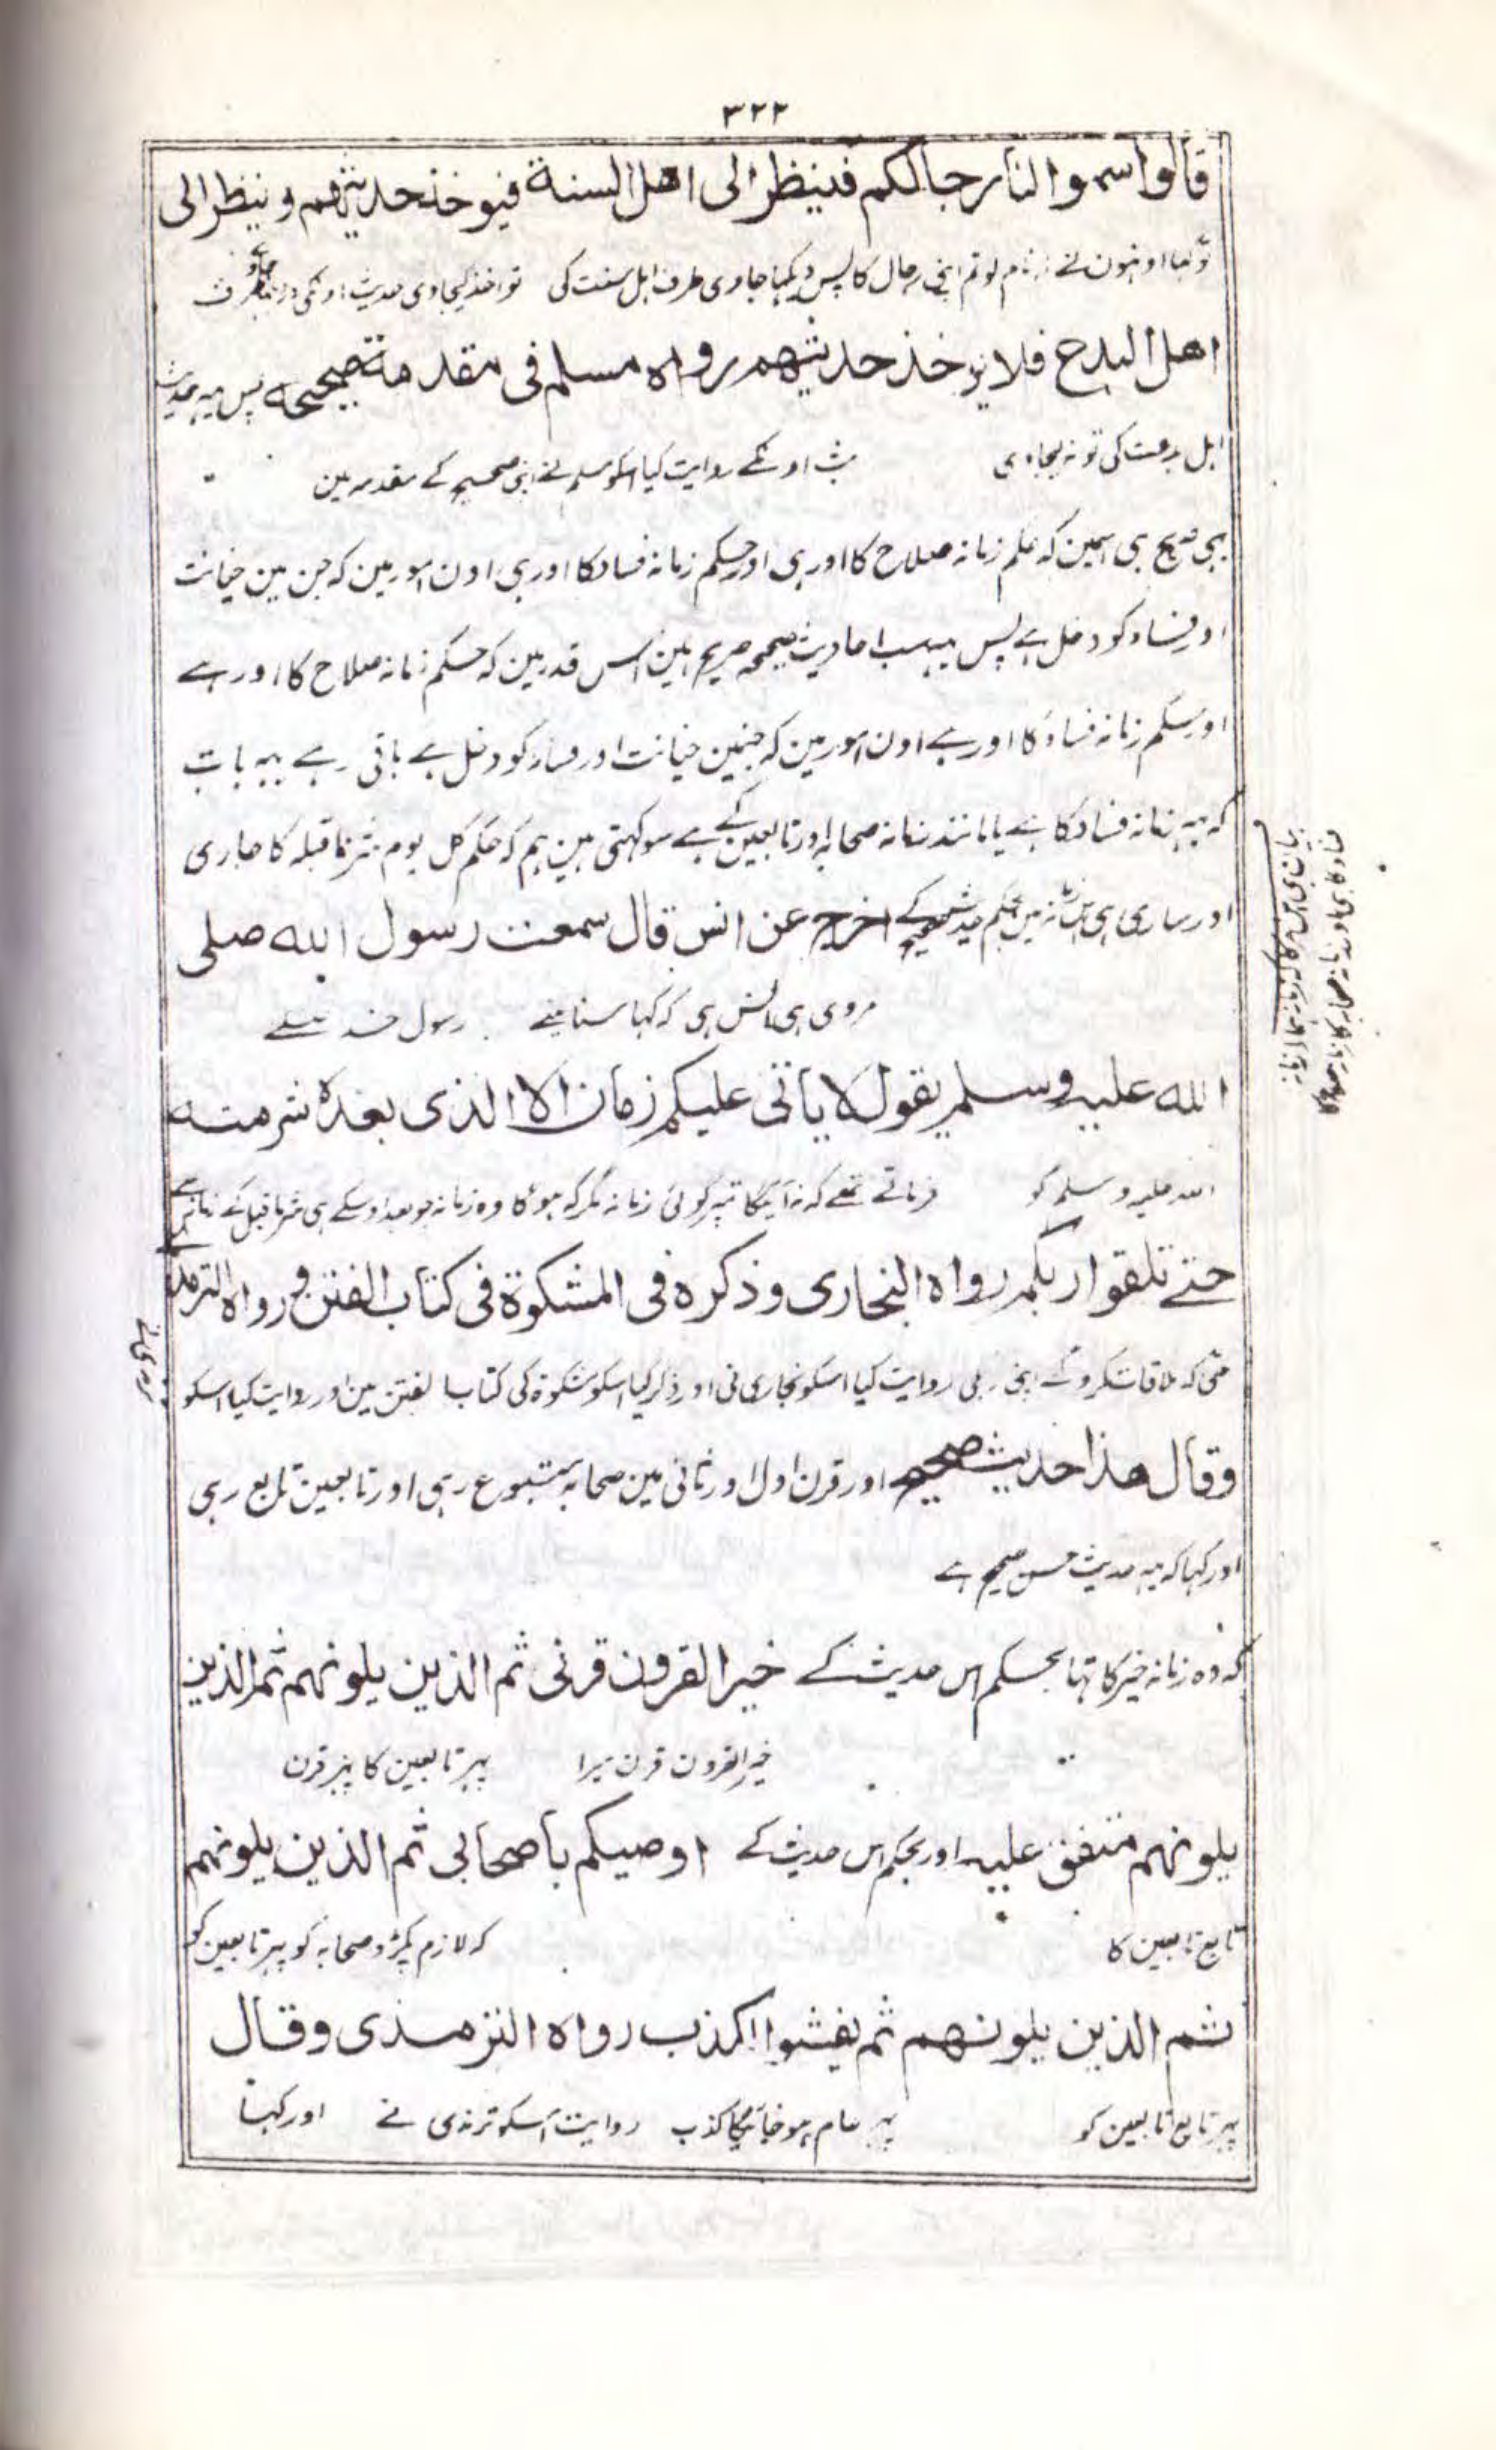 ٣٢٢
قالوا سموا لنا رجالكم فينظر الى اهل السنة فيوخذ حديثهم وينظر الى
تو کہا اونہون نے نام لو تم اپنی رجال کا پس دیکہا جاوی طرف اہل سنت کی تو اخذ کیجاوی حدیث اونکی اور دیکہا جاوی طرف
اهل البدع فلا يوخذ حديثهم رواه مسلم فى مقدمة صحيحه پس یہ حدیث
اہل بدعت کی تو نہ لیجاوی حدیث اونکے روایت کیا اسکو مسلم نے اپنی صحیح کے مقدمہ مین
بہی صریح ہی اسمین کہ حکم زمانہ صلاح کا اور ہی اور حکم زمانہ فساد کا اور ہی اون امور مین کہ جن مین خیانت
اور فساد کو دخل ہے پس یہ سب احادیث صحیحہ صریح ہین اس قدر مین کہ حکم زمانہ صلاح کا اور ہے
اور حکم زمانہ فساد کا اور ہے اون امور مین کہ جنمین خیانت اور فساد کو دخل ہے باقی رہے یہہ بات
کہ یہ زمانہ فساد کا ہے یا مانند زمانہ صحابہ اور تابعین کے ہے سو کہتی ہین ہم کہ حکم کل یوم شر مما قبلہ کا جاری
اور ساری ہی اس زمانہ مین بحکم حدیث صحیح کے اخرج عن انس قال سمعت رسول الله صلى
مروی ہی انس ہی کہ کہا سنا مینے رسول خدا صلے
الله عليه وسلم يقول لا ياتى عليكم زمان الا الذى بعده شر منه
اللہ علیہ وسلم کو فرماتے تھے کہ نہ آئیگا تمپر کوئی زمانہ مگر کہ ہوگا وہ زمانہ جو بعد اوسکے ہی شر ما قبل کے زمانہ سے
حتے تلقوا ربكم رواه البخارى وذكره فى المشكوة فى كتاب الفتن و رواه الترمذى
حتی کہ ملاقات کروگے اپنی ربی روایت کیا اسکو بخاری نی اور ذکر کیا اسکو مشکوۃ کی کتاب الفتن مین اور روایت کیا اسکو
ترمذی نے
وقال هذا حديث صحيح اور قرن اول اور ثانی مین صحابہ متبوع رہی اور تابعین تابع رہی
اور کہا کہ یہ حدیث حسن صحیح ہے
کہ وہ زمانہ خیر کا تہا بحکم اس حدیث کے خير القرون قرنى ثم الذين يلونهم ثم الذين
خیر القرون قرن میرا پہر تابعین کا پہر قرن
يلونهم متفق عليه اور بحکم اس حدیث کے اوصيكم باصحابى ثم الذين يلونهم
تابع تابعین کا کہ لازم پکڑو صحابہ کو پہر تابعین کو
ثم الذين يلونهم ثم يفشوا الكذب رواه الترمذى وقال
پہر تابع تابعین کو پہر عام ہو جائیگا کذب روایت اسکو ترمذی نے اور کہا